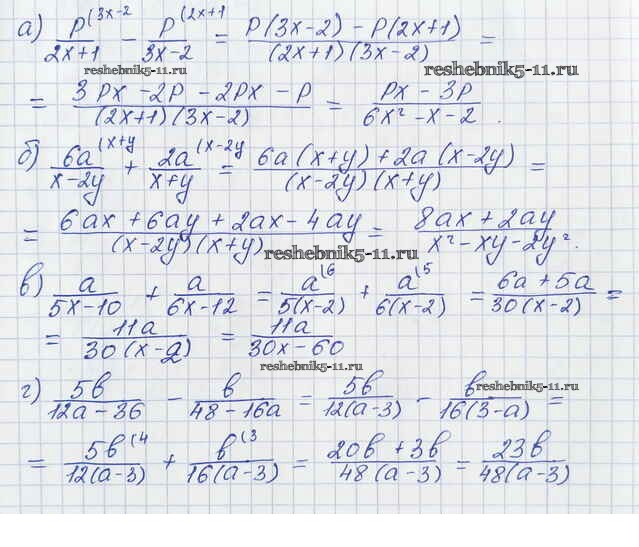 а) p^(3x-2 / 2x+1 - p^(2x+1 / 3x-2 = p(3x-2) - p(2x+1) / (2x+1)(3x-2) =
reshebnik5-11.ru reshebnik5-11.ru
= 3px - 2p - 2px - p / (2x+1)(3x-2) = px - 3p / 6x² - x - 2 .
б) 6a^(x+y / x-2y + 2a^(x-2y / x+y = 6a(x+y) + 2a(x-2y) / (x-2y)(x+y) =
= 6ax + 6ay + 2ax - 4ay / (x-2y)(x+y) = 8ax + 2ay / x² - xy - 2y² .
reshebnik5-11.ru
в) a / 5x-10 + a / 6x-12 = a^(6 / 5(x-2) + a^(5 / 6(x-2) = 6a + 5a / 30(x-2) =
= 11a / 30(x-2) = 11a / 30x-60
reshebnik5-11.ru
г) 5b / 12a-36 - b / 48-16a = 5b / 12(a-3) - b / 16(3-a) =
reshebnik5-11.ru
= 5b^(4 / 12(a-3) + b^(3 / 16(a-3) = 20b + 3b / 48(a-3) = 23b / 48(a-3)